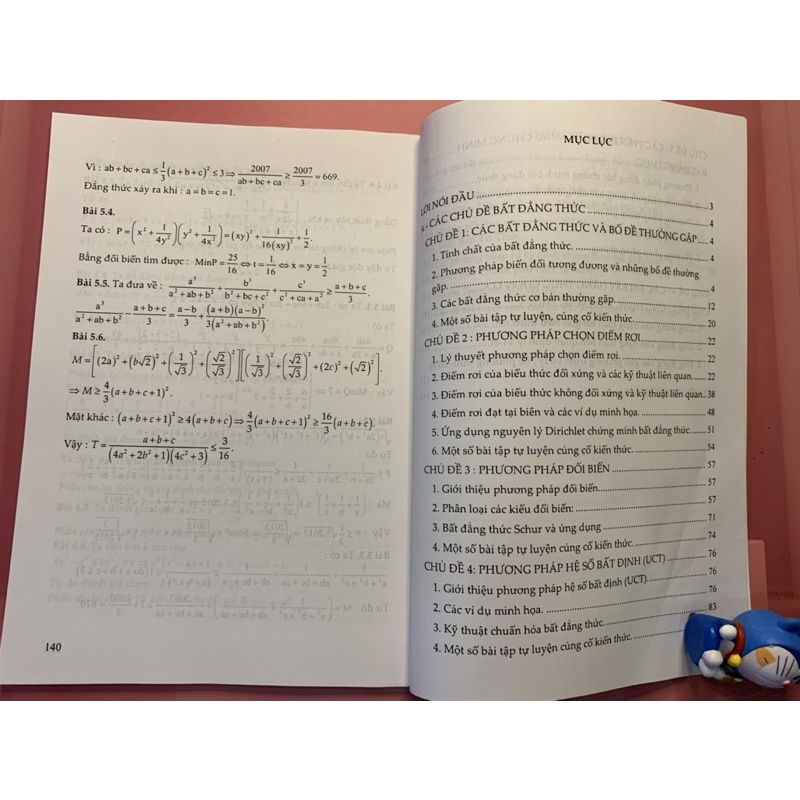 Vì : ab + bc + ca ≤ 1/3 (a + b + c)² ≤ 3 ⇒ 2007/(ab + bc + ca) ≥ 2007/3 = 669.
Đẳng thức xảy ra khi : a = b = c = 1.
Bài 5.4.
Ta có : P = (x² + 1/(4y²))(y² + 1/(4x²)) = (xy)² + 1/(16(xy)²) + 1/2.
Bằng đổi biến tìm được : MinP = 25/16 ⇔ t = 1/16 ⇔ x = y = 1/2.
Bài 5.5. Ta đưa về : a³/(a² + ab + b²) + b³/(b² + bc + c²) + c³/(c² + ca + a²) ≥ (a + b + c)/3.
a³/(a² + ab + b²) − (a + b + c)/3 = (a − b)/3 + (a + b)(a − b)²/(3(a² + ab + b²)).
Bài 5.6.
M = [(2a)² + (b√2)² + (1/√3)² + (√2/√3)²][(1/√3)² + (√2/√3)² + (2c)² + (√2)²].
⇒ M ≥ 4/3 (a + b + c + 1)².
Mặt khác : (a + b + c + 1)² ≥ 4(a + b + c) ⇒ 4/3 (a + b + c + 1)² ≥ 16/3 (a + b + c).
Vậy : T = (a + b + c)/((4a² + 2b² + 1)(4c² + 3)) ≤ 3/16.
140
MỤC LỤC
LỜI NÓI ĐẦU 3
A - CÁC CHỦ ĐỀ BẤT ĐẲNG THỨC 4
CHỦ ĐỀ 1: CÁC BẤT ĐẲNG THỨC VÀ BỔ ĐỀ THƯỜNG GẶP 4
1. Tính chất của bất đẳng thức. 4
2. Phương pháp biến đổi tương đương và những bổ đề thường
gặp. 4
3. Các bất đẳng thức cơ bản thường gặp. 12
4. Một số bài tự luyện, củng cố kiến thức. 20
CHỦ ĐỀ 2 : PHƯƠNG PHÁP CHỌN ĐIỂM RƠI 22
1. Lý thuyết phương pháp chọn điểm rơi. 22
2. Điểm rơi của biểu thức đối xứng và các kỹ thuật liên quan. 22
3. Điểm rơi của biểu thức không đối xứng và kỹ thuật liên quan. 38
4. Điểm rơi đạt tại biên và các ví dụ minh họa. 48
5. Ứng dụng nguyên lý Dirichlet chứng minh bất đẳng thức. 51
6. Một số bài tập tự luyện củng cố kiến thức. 54
CHỦ ĐỀ 3 : PHƯƠNG PHÁP ĐỔI BIẾN 57
1. Giới thiệu phương pháp đổi biến. 57
2. Phân loại các kiểu đổi biến: 57
3. Bất đẳng thức Schur và ứng dụng 71
4. Một số bài tập tự luyện củng cố kiến thức. 74
CHỦ ĐỀ 4: PHƯƠNG PHÁP HỆ SỐ BẤT ĐỊNH (UCT) 76
1. Giới thiệu phương pháp hệ số bất định (UCT). 76
2. Các ví dụ minh họa. 76
3. Kỹ thuật chuẩn hóa bất đẳng thức. 83
4. Một số bài tập tự luyện củng cố kiến thức.